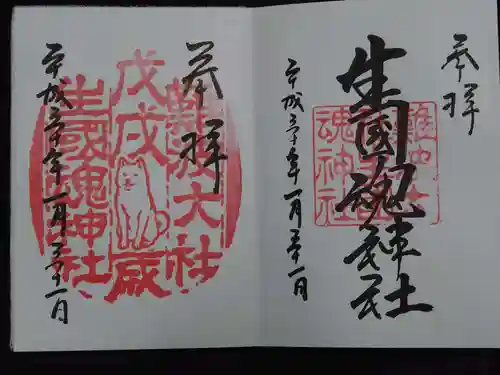 奉拝
難波大社
生國魂神社
生國魂神社
平成三十年一月三十一日
奉拝
難波大社
戊戌歳
生國魂神社
平成三十年一月三十一日